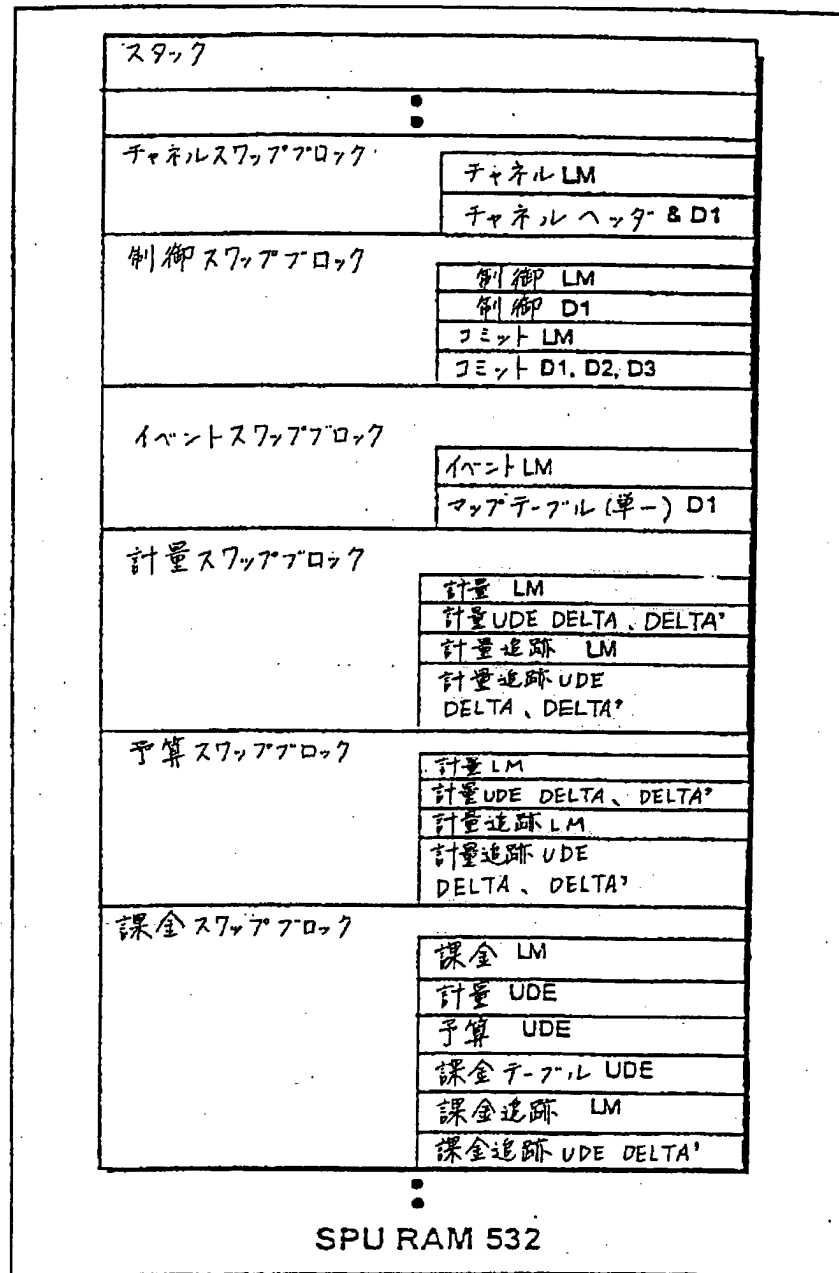 スタック
チャネルスワップブロック
チャネル LM
チャネル ヘッダ & D1
制御スワップブロック
制御 LM
制御 D1
コミット LM
コミット D1, D2, D3
イベントスワップブロック
イベント LM
マップテーブル (単一) D1
計量スワップブロック
計量 LM
計量UDE DELTA、DELTA'
計量追跡 LM
計量追跡 UDE
DELTA、DELTA'
予算スワップブロック
計量LM
計量UDE DELTA、DELTA'
計量追跡 LM
計量追跡 UDE
DELTA、DELTA'
課金スワップブロック
課金 LM
計量 UDE
予算 UDE
課金テーブル UDE
課金追跡 LM
課金追跡 UDE DELTA'
SPU RAM 532